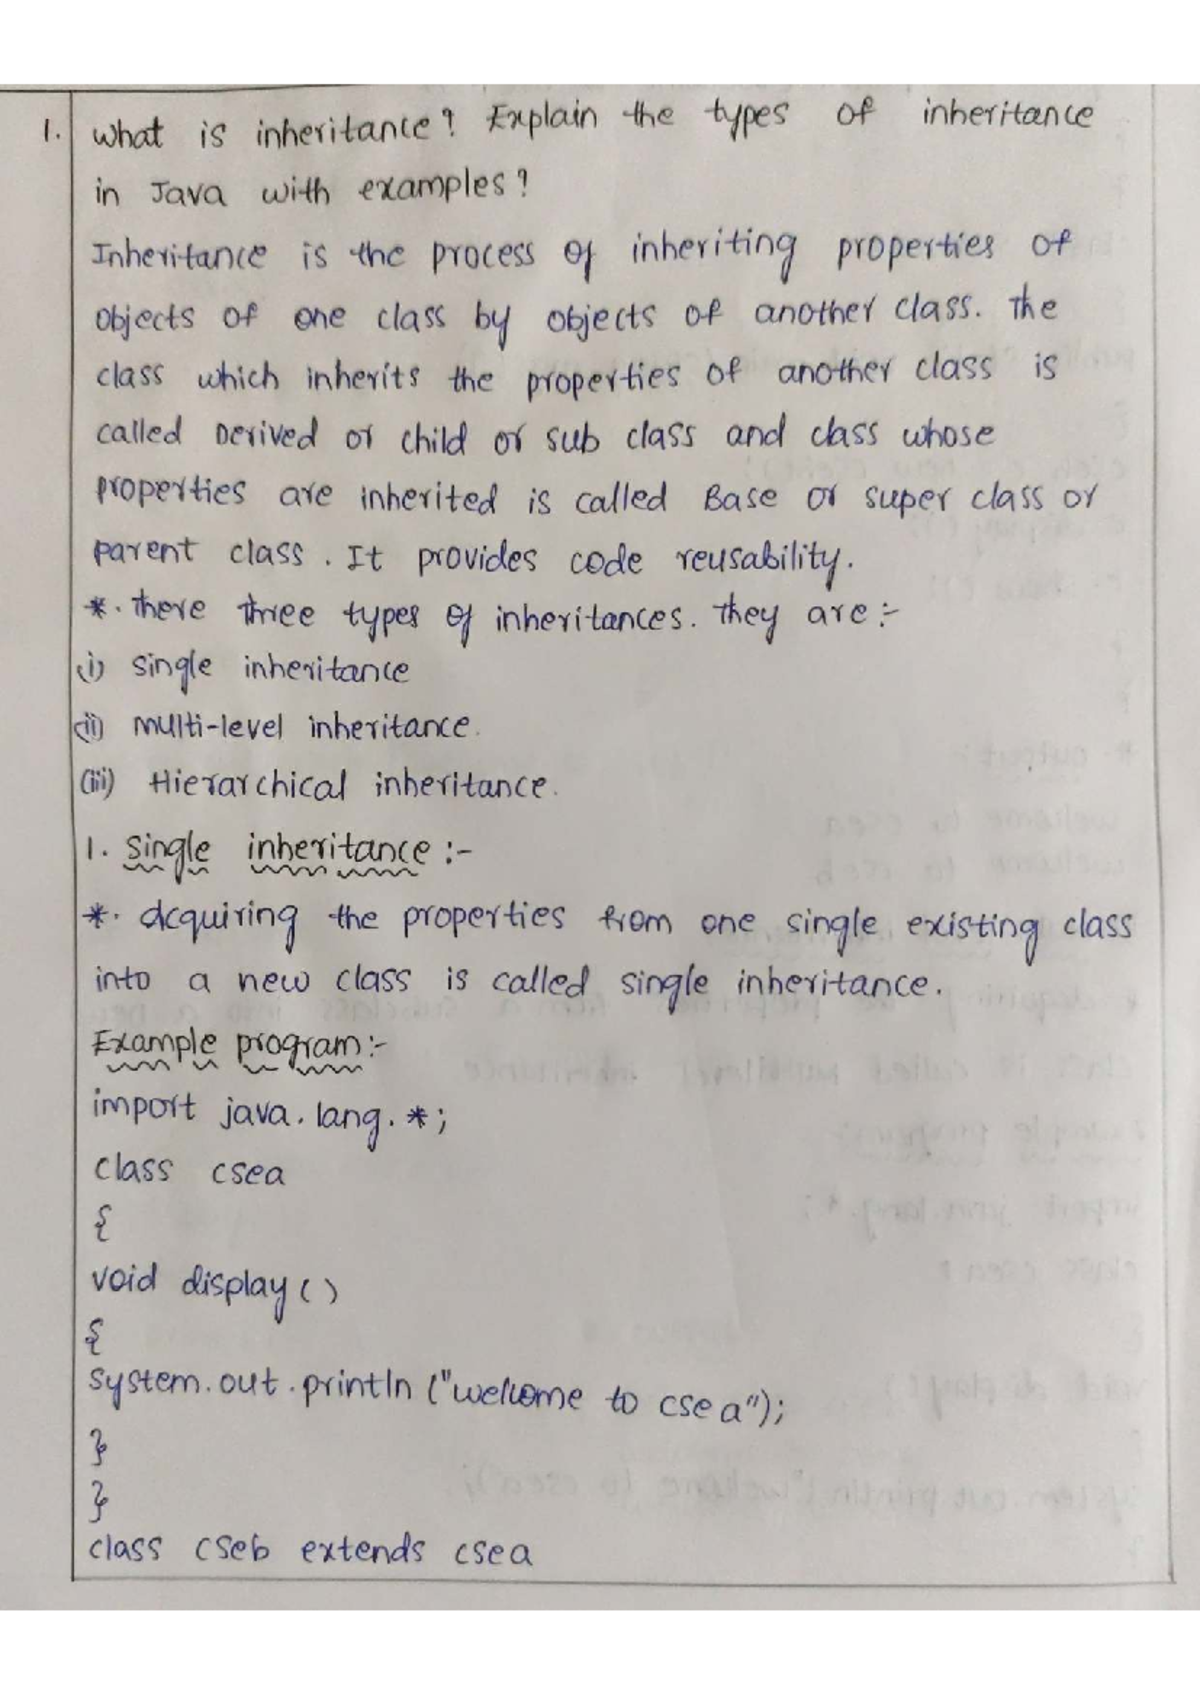 1. What is inheritance? Explain the types of inheritance
in Java with examples?
Inheritance is the process of inheriting properties of
objects of one class by objects of another class. The
class which inherits the properties of another class is
called Derived or child or sub class and class whose
properties are inherited is called Base or super class or
parent class. It provides code reusability.
*. There three types of inheritances. They are:-
(i) Single inheritance
(ii) Multi-level inheritance.
(iii) Hierarchical inheritance.
1. Single inheritance:-
*. Acquiring the properties from one single existing class
into a new class is called single inheritance.
Example program:-
import java.lang.*;
class csea
{
void display()
{
System.out.println("welcome to cse a");
}
}
class cseb extends csea